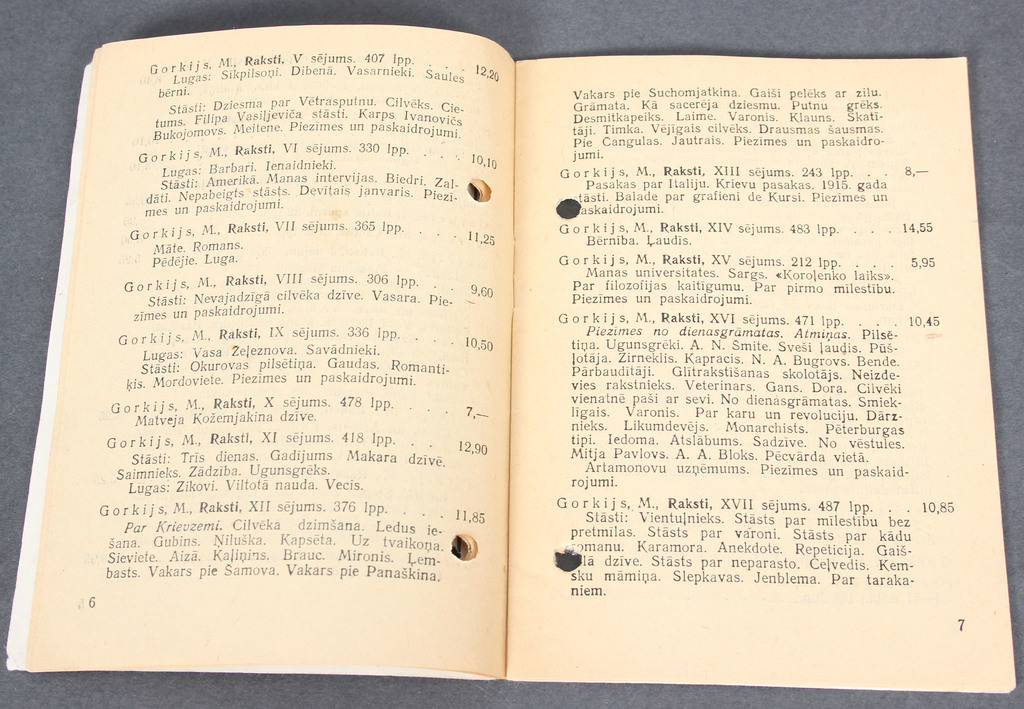 Gorkijs, M., Raksti, V sējums. 407 lpp. . . . 12,20
Lugas: Sīkpilsoņi. Dibenā. Vasarnieki. Saules
bērni.
Stāsti: Dziesma par Vētrasputnu. Cilvēks. Cie-
tums. Filipa Vasiļjeviča stāsti. Karps Ivanovičs
Bukojomovs. Meitene. Piezīmes un paskaidrojumi.
Gorkijs, M., Raksti, VI sējums. 330 lpp. . . . 10,10
Lugas: Barbari. Ienaidnieki.
Stāsti: Amerikā. Manas intervijas. Biedri. Zal-
dāti. Nepabeigts stāsts. Devītais janvaris. Piezī-
mes un paskaidrojumi.
Gorkijs, M., Raksti, VII sējums. 365 lpp. . . . 11,25
Māte. Romans.
Pēdējie. Luga.
Gorkijs, M., Raksti, VIII sējums. 306 lpp. . . 9,60
Stāsti: Nevajadzīgā cilvēka dzīve. Vasara. Pie-
zīmes un paskaidrojumi.
Gorkijs, M., Raksti, IX sējums. 336 lpp. . . . 10,50
Lugas: Vasa Žeļeznova. Savādnieki.
Stāsti: Okurovas pilsētiņa. Gaudas. Romanti-
ķis. Mordoviete. Piezīmes un paskaidrojumi.
Gorkijs, M., Raksti, X sējums. 478 lpp. . . . 7,—
Matveja Kožemjakina dzīve.
Gorkijs, M., Raksti, XI sējums. 418 lpp. . . 12,90
Stāsti: Trīs dienas. Gadījums Makara dzīvē.
Saimnieks. Zādzība. Ugunsgrēks.
Lugas: Zikovi. Viltotā nauda. Vecis.
Gorkijs, M., Raksti, XII sējums. 376 lpp. . . . 11,85
Par Krievzemi. Cilvēka dzimšana. Ledus ie-
šana. Gubins. Ņiluška. Kapsēta. Uz tvaikoņa.
Sieviete. Aizā. Kaļiņins. Brauc. Mironis. Ļem-
basts. Vakars pie Šamova. Vakars pie Panaškina.
6
Vakars pie Suchomjatkina. Gaiši pelēks ar zilu.
Grāmata. Kā sacerēja dziesmu. Putnu grēks.
Desmitkapeiks. Laime. Varonis. Klauns. Skatī-
tāji. Timka. Vējīgais cilvēks. Drausmas šausmas.
Pie Čangulas. Jautrais. Piezīmes un paskaidro-
jumi.
Gorkijs, M., Raksti, XIII sējums. 243 lpp. . . 8,—
Pasakas par Itāliju. Krievu pasakas. 1915. gada
tāsti. Balāde par grafieni de Kursī. Piezīmes un
askaidrojumi.
Gorkijs, M., Raksti, XIV sējums. 483 lpp. . . . 14,55
Bērnība. Ļaudīs.
Gorkijs, M., Raksti, XV sējums. 212 lpp. . . . 5,95
Manas universitātes. Sargs. «Koroļenko laiks».
Par filozofijas kaitīgumu. Par pirmo mīlestību.
Piezīmes un paskaidrojumi.
Gorkijs, M., Raksti, XVI sējums. 471 lpp. . . . 10,45
Piezīmes no dienasgrāmatas. Atmiņas. Pilsē-
tiņa. Ugunsgrēki. A. N. Šmite. Sveši ļaudis. Pūš-
ļotāja. Zirneklis. Kapracis. N. A. Bugrovs. Bende.
Pārbaudītāji. Glītrakstīšanas skolotājs. Neizde-
vies rakstnieks. Veterinārs. Gans. Dora. Cilvēki
vienatnē paši ar sevi. No dienasgrāmatas. Smiek-
līgais. Varonis. Par karu un revolūciju. Dārz-
nieks. Likumdevējs. Monarchists. Pēterburgas
tipi. Iedoma. Atslābums. Sadzīve. No vēstules.
Mitja Pavlovs. A. A. Bloks. Pēcvārda vietā.
Artamonovu uzņēmums. Piezīmes un paskaid-
rojumi.
Gorkijs, M., Raksti, XVII sējums. 487 lpp. . . 10,85
Stāsti: Vientuļnieks. Stāsts par mīlestību bez
pretmīlas. Stāsts par varoni. Stāsts par kādu
omanu. Karamora. Anekdote. Repetīcija. Gaiš-
lā dzīve. Stāsts par neparasto. Ceļvedis. Ķem-
sku māmiņa. Slepkavas. Jenblema. Par taraka-
niem.
7